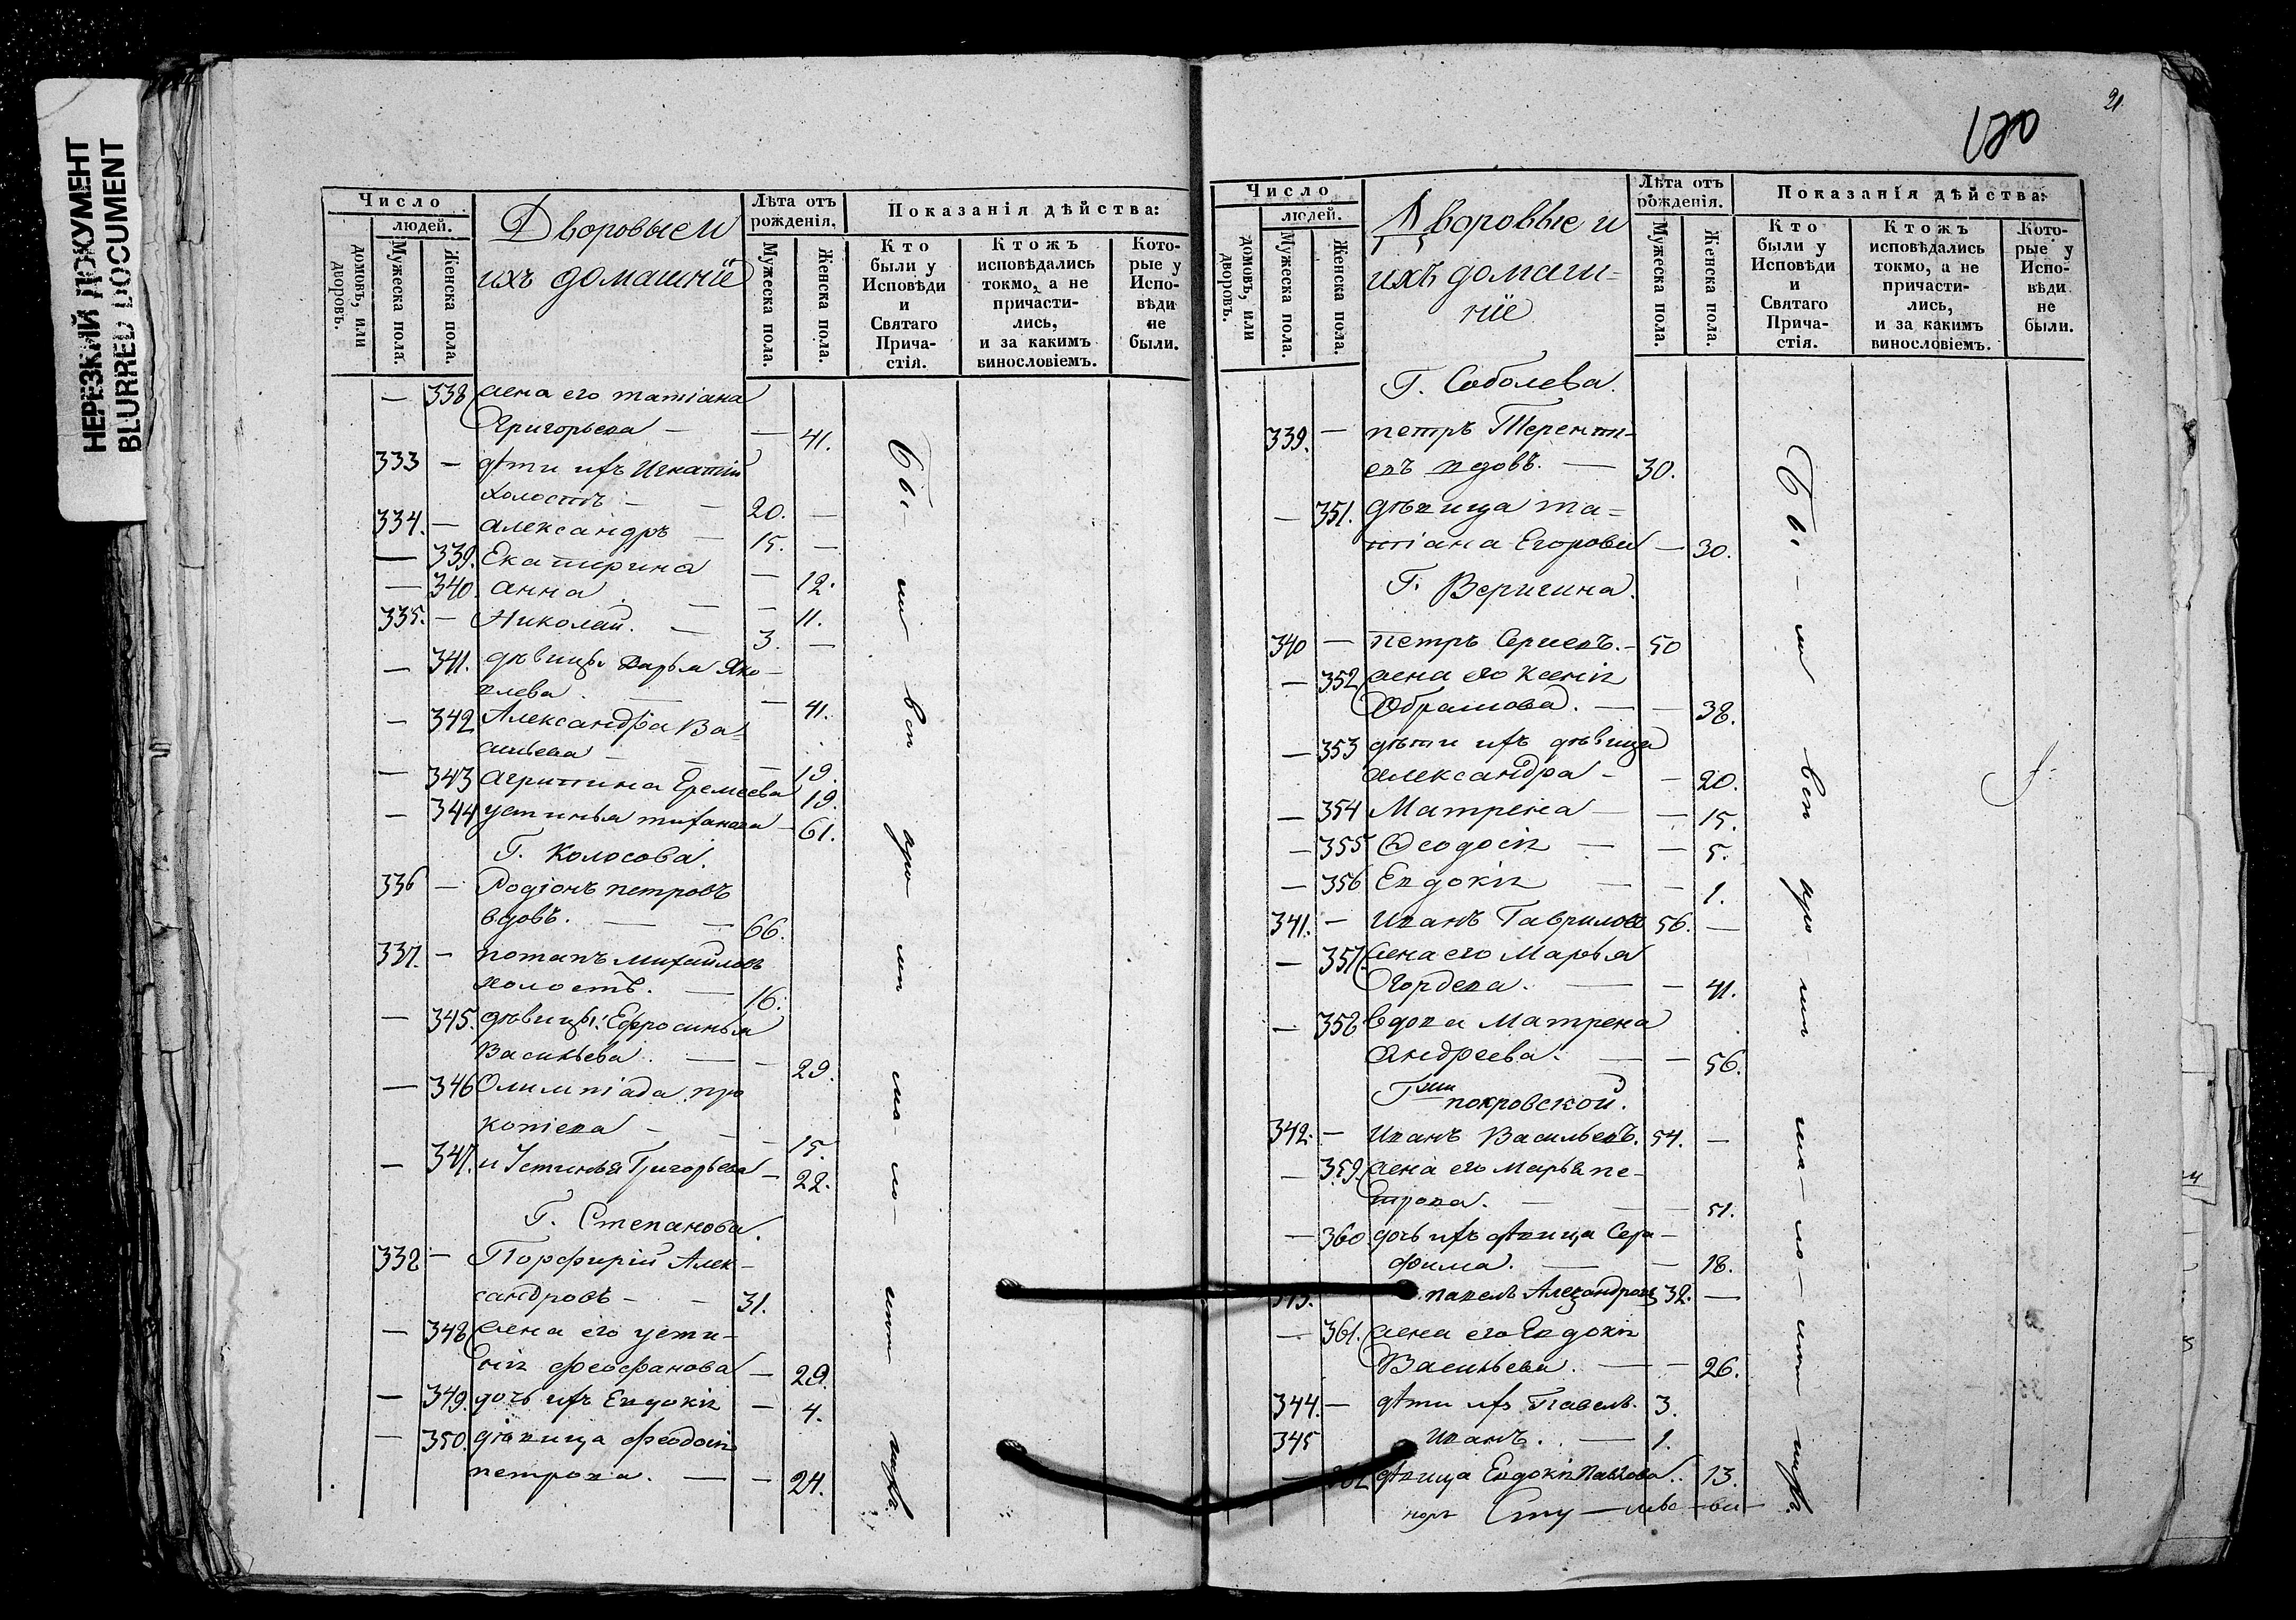 НЕРЕЗКИЙ ДОКУМЕНТ
BLURRED DOCUMENT
Число
людей.
домовъ, или дворовъ.
Мужеска пола.
Женска пола.
Дворовые и
ихъ домашніе
Лѣта отъ рожденія.
Мужеска пола.
Женска пола.
Показанія дѣйства:
Кто были у Исповѣди и Святаго Прича-стія.
Ктожъ исповѣдались токмо, а не причасти-лись, и за какимъ винословіемъ.
Кото-рые у Испо-вѣди не были.
— 338 жена его татіана
Григорьева — — 41.
333 — дѣти ихъ Игнатій
холостъ — — 20. —
334. — александръ — 15. —
— 339. Екатерина — 12.
— 340. анна — — 11.
335. — Николай. — 3. —
— 341. дѣвицы дарья Яко-
влева. — — 41.
— 342 Александра Ва=
сильева — — — 19.
— 343 агрипина Еремеева 19.
— 344 устинья тиханова — 61.
Г. Колосова.
336 — Родіонъ петровъ
вдовъ. — — 66.
337. — потапъ михайловъ
холостъ. — 16.
— 345. дѣвицы: Ефросинья
Васильева. — — 29.
— 346 Олимпіада про
копіева — — — 15.
— 347. и Устинья Григорьева — 22.
Г. Степанова.
338 — Порфирій Алек-
сандровъ — — 31.
— 348 жена его усти-
нія феофанова — 29.
— 349. дочь ихъ Евдокія — 4.
— 350. дѣвица феодосія
петрова. — — 24.
21.
Число
людей.
домовъ, или дворовъ.
Мужеска пола.
Женска пола.
Дворовые и
ихъ домаш=
ніе
Лѣта отъ рожденія.
Мужеска пола.
Женска пола.
Показанія дѣйства:
Кто были у Исповѣди и Святаго Прича-стія.
Ктожъ исповѣдались токмо, а не причасти-лись, и за какимъ винословіемъ.
Кото-рые у Испо-вѣди не были.
Г. Соболева.
339. — петръ Теренти-
евъ вдовъ. — 30.
— 351. дѣвица та=
тіана Егорова — 30.
Г. Веригина.
340 — петръ Сергіевъ. — 50
— 352 жена его ксенія
Абрамова. — — 38.
— 353 дѣти ихъ дѣвица
александра — — 20.
— 354 Матрена — — 15.
— 355 Феодосія — — 5.
— 356 Евдокія — — 1.
341. — Иванъ Гавриловъ 56. —
— 357. жена его Марья
Гордева. — — 41.
— 358 вдова Матрена
Андреева. — — 56.
Гжи покровской.
342. — Иванъ Васильевъ. 54. —
— 359. жена его марья пе-
трова. — — 51.
— 360. дочь ихъ дѣвица Сера-
фима. — — 18.
павелъ Александровъ 32. —
— 361. жена его Евдокія
Васильева. — — 26.
344. — дѣти ихъ Павелъ. 3.
345 Иванъ. — 1.
дѣвица Евдокія Павлова. 13.